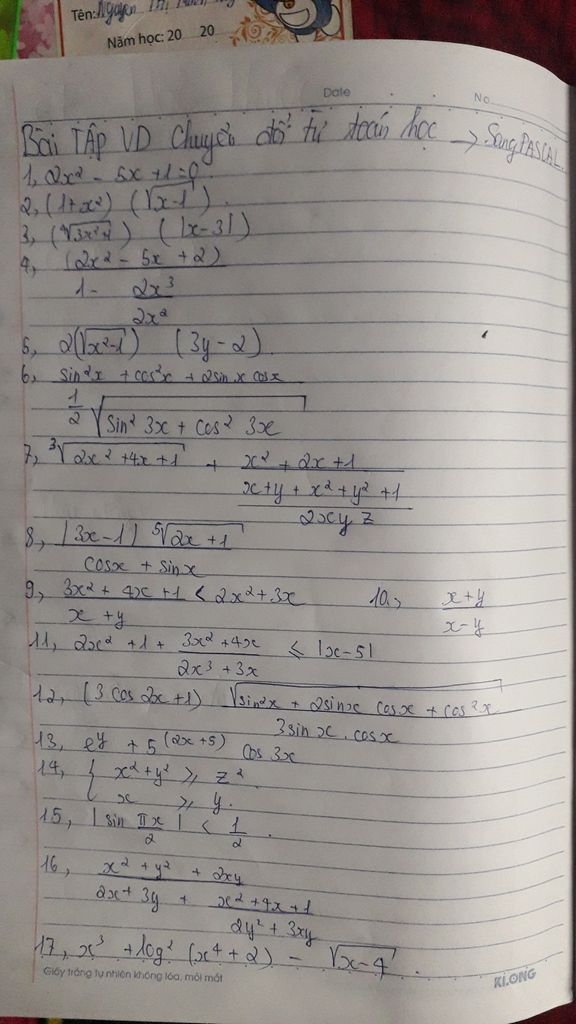 Tên: Nguyễn Thị
Năm học: 20 20
Date No
Bài TẬP VD Chuyển đổi từ toán học → Sang PASCAL
1, 2x² - 5x + 1 = 0
2, (1+x²) (√x-1)
3, (⁴√3x²+2) (|x-3|)
4, (2x² - 5x + 2)
1 - 2x³
2x²
5, 2(√x²-1) (3y-2)
6, sin²x + cos²x + 2sin x cosx
1/2 √sin² 3x + cos² 3x
7, ³√2x² + 4x + 1 + x² + 2x + 1
x + y + x² + y² + 1
2xy z
8, |3x-1| ⁵√2x + 1
cosx + sinx
9, 3x² + 4x + 1 < 2x² + 3x 10, x+y
x + y x-y
11, 2x² + 1 + 3x² + 4x ≤ |x-5|
2x³ + 3x
12, (3 cos 2x + 1) √sin²x + 2sinx cosx + cos²x
3sin x . cosx
13, e^y + 5^(2x+5) cos 3x
14, { x² + y² ≥ z²
x ≥ y.
15, | sin πx/2 | < 1/2 .
16, x² + y² + 2xy
2x + 3y + x² + 4x + 1
2y² + 3xy
17, x³ + log² (x⁴ + 2) - √x-4 .
Giấy trắng tự nhiên không lóa, mỏi mắt KLONG